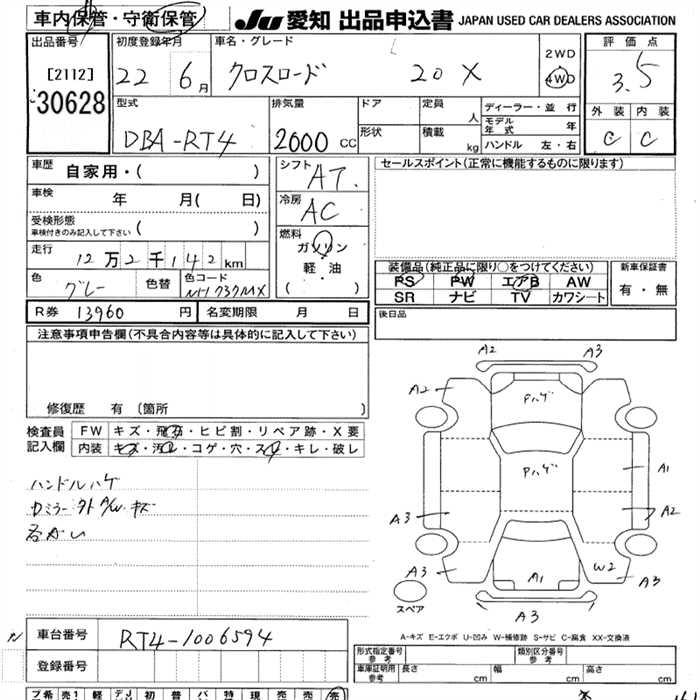 車内保管・守衛保管 JU 愛知 出品申込書 JAPAN USED CAR DEALERS ASSOCIATION
出品番号 初度登録年月 車名・グレード 2WD 評価点
[2112] 22 6月 クロスロード 20X 4WD 3.5
30628 型式 排気量 ドア 定員 人 ディーラー・並行 外装 内装
モデル年式 年
DBA-RT4 2000 CC 形状 積載 kg ハンドル 左・右 C C
車歴 自家用・( ) シフト AT. セールスポイント(正常に機能するものに限ります)
車検 年 月( 日) 冷房 AC
受検形態
車検付きのみ記入して下さい ( )
燃料 ガソリン
走行 12万2千142km 軽・油 装備品(純正品に限り○をつけてください) 新車保証書
色 グレー 色替 色コード NH737MX ( ) PS PW エアB AW 有・無
SR ナビ TV カワシート
R券 13960円 名変期限 月 日 後日品
注意事項申告欄(不具合内容等は具体的に記入して下さい)
修復歴 有 (箇所 )
検査員 FW キズ・飛石・ヒビ割・リペア跡・X要
記入欄 内装 キズ・汚れ・コゲ・穴・スレ・キレ・破レ
ハンドルハゲ
カミラー外 A/W キズ
A2 A3
A2 Pハゲ
Pハゲ A1
A3 A2
A3 A1 W2 A3
スペア A3
A-キズ E-エクボ U-凹み W-補修跡 S-サビ C-腐食 XX-交換済
車台番号 RT4-1006594
登録番号 形式指定番号 参考 類別区分番号 参考
車庫証明用 参考 長さ cm 幅 cm 高さ cm